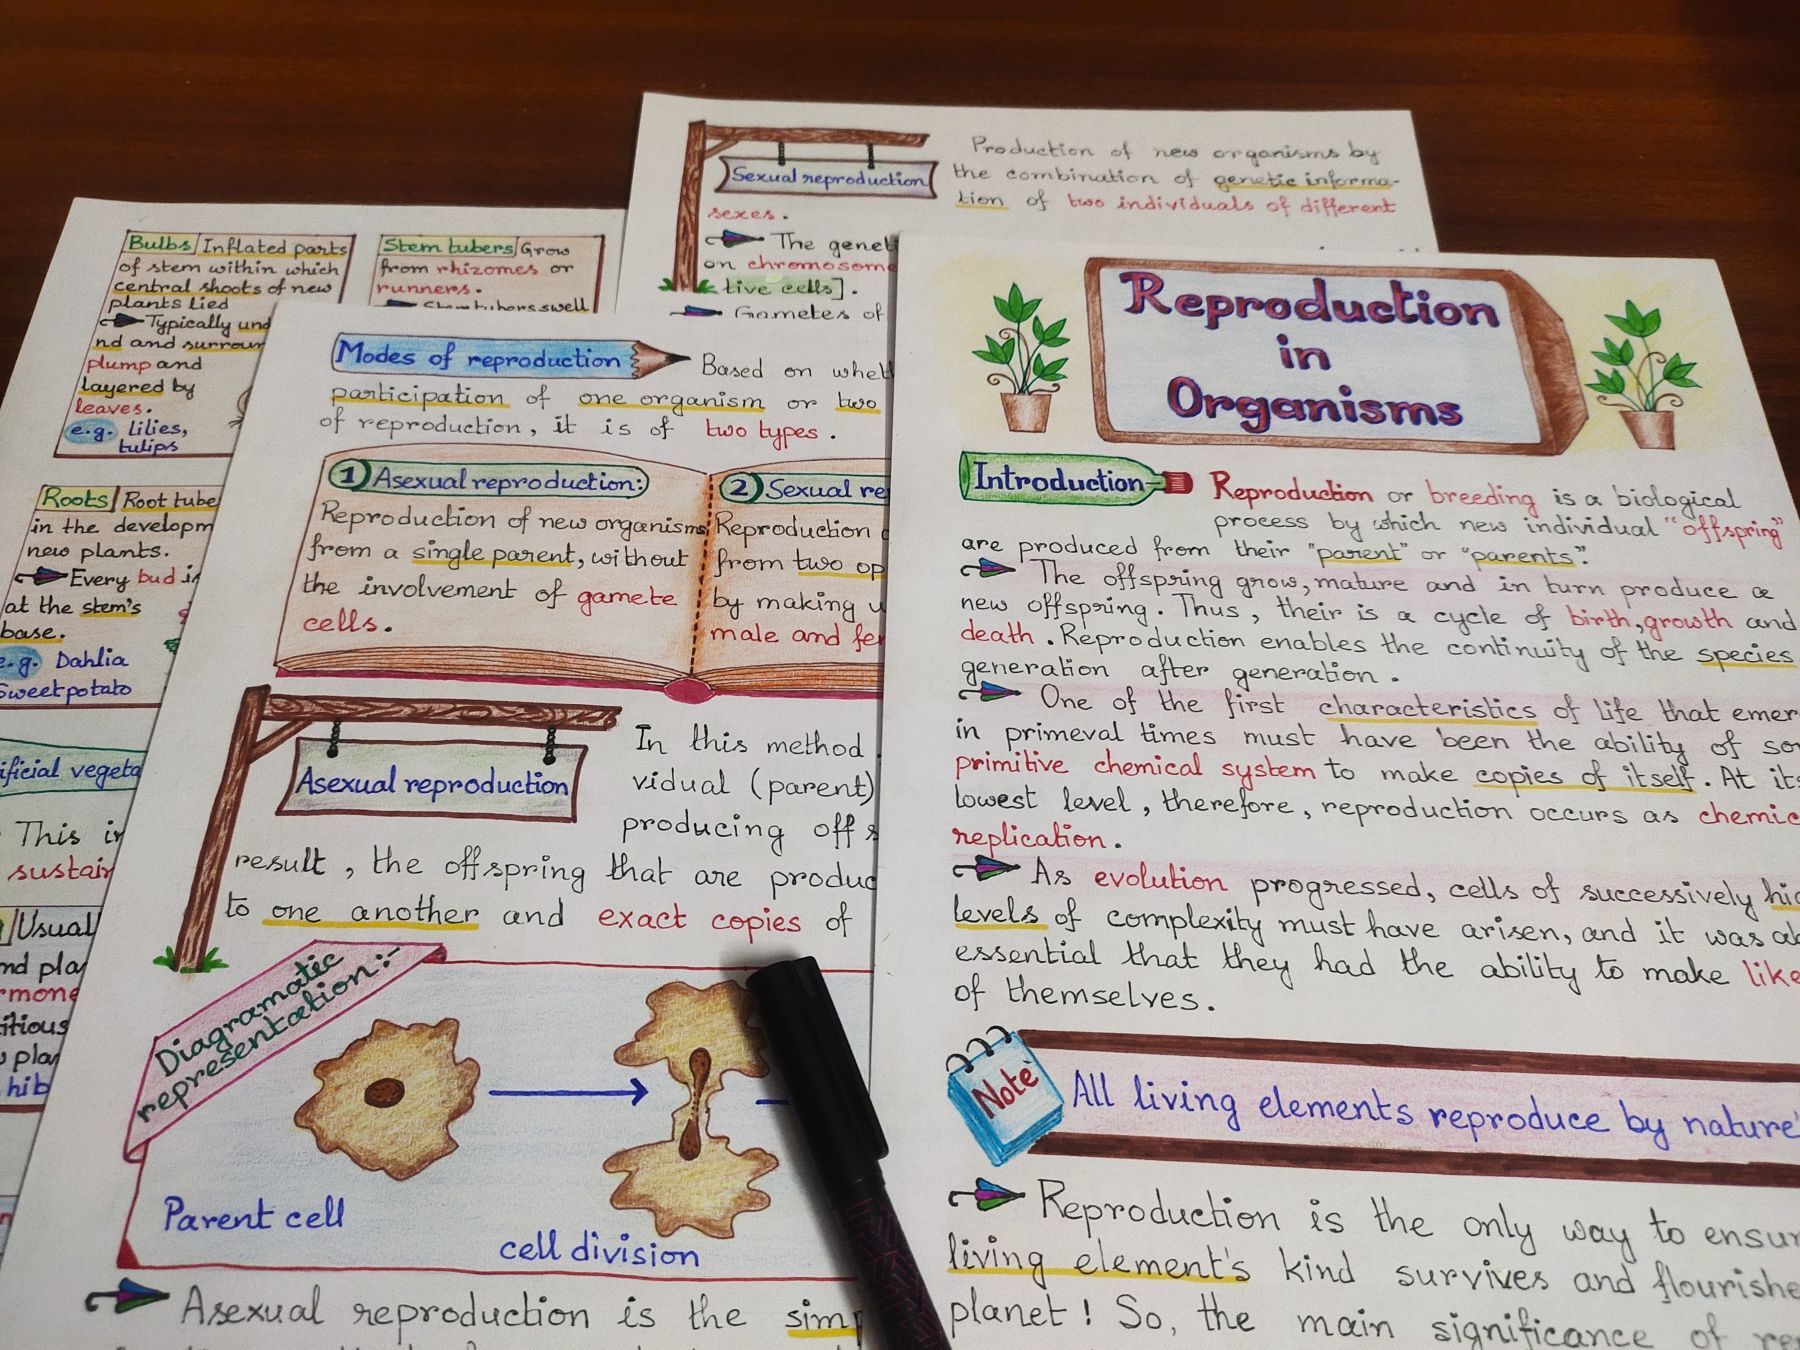 Production of new organisms by
Sexual reproduction
the combination of genetic informa-
tion of two individuals of different
sexes.
The genet
on chromosome
tive cells].
Gametes of
Bulbs Inflated parts
of stem within which
central shoots of new
plants lied
Typically und
nd and surroun
plump and
layered by
leaves.
e.g. Lilies,
tulips
Stem tubers Grow
from rhizomes or
runners.
Stem tubers swell
Roots Root tube
in the developm
new plants.
Every bud in
at the stem's
base.
e.g. Dahlia
Sweet potato
ificial vegeta
This in
sustain
Usual
nd pla
rmone
itious
plan
hib
Modes of reproduction Based on whet
participation of one organism or two
of reproduction, it is of two types.
1 Asexual reproduction:
Reproduction of new organisms
from a single parent, without
the involvement of gamete
cells.
2 Sexual re
Reproduction o
from two op
by making u
male and fe
Asexual reproduction
In this method
vidual (parent)
producing off s
result, the offspring that are produc
to one another and exact copies of
Diagramatic
representation:-
Parent cell
cell division
Asexual reproduction is the simp
Reproduction
in
Organisms
Introduction Reproduction or breeding is a biological
process by which new individual "offspring"
are produced from their "parent" or "parents".
The offspring grow, mature and in turn produce a
new offspring. Thus, their is a cycle of birth, growth and
death. Reproduction enables the continuity of the species
generation after generation.
One of the first characteristics of life that emer
in primeval times must have been the ability of so
primitive chemical system to make copies of itself. At its
lowest level, therefore, reproduction occurs as chemic
replication.
As evolution progressed, cells of successively hig
levels of complexity must have arisen, and it was ab
essential that they had the ability to make like
of themselves.
Note
All living elements reproduce by nature
Reproduction is the only way to ensur
living element's kind survives and flourishe
planet! So, the main significance of re